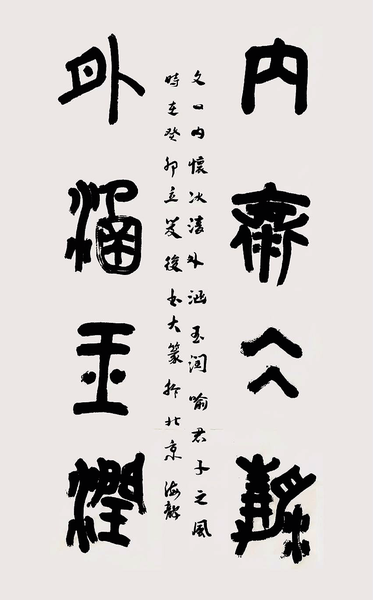 内懷冰清
外涵玉潤
文曰内懷冰清外涵玉润喻君子之风
時在癸卯立夏後书大篆於北京 海